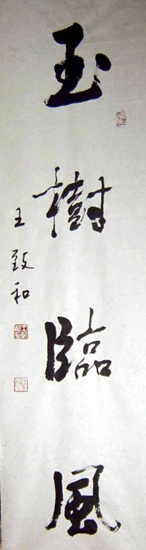 玉樹臨風
王致和